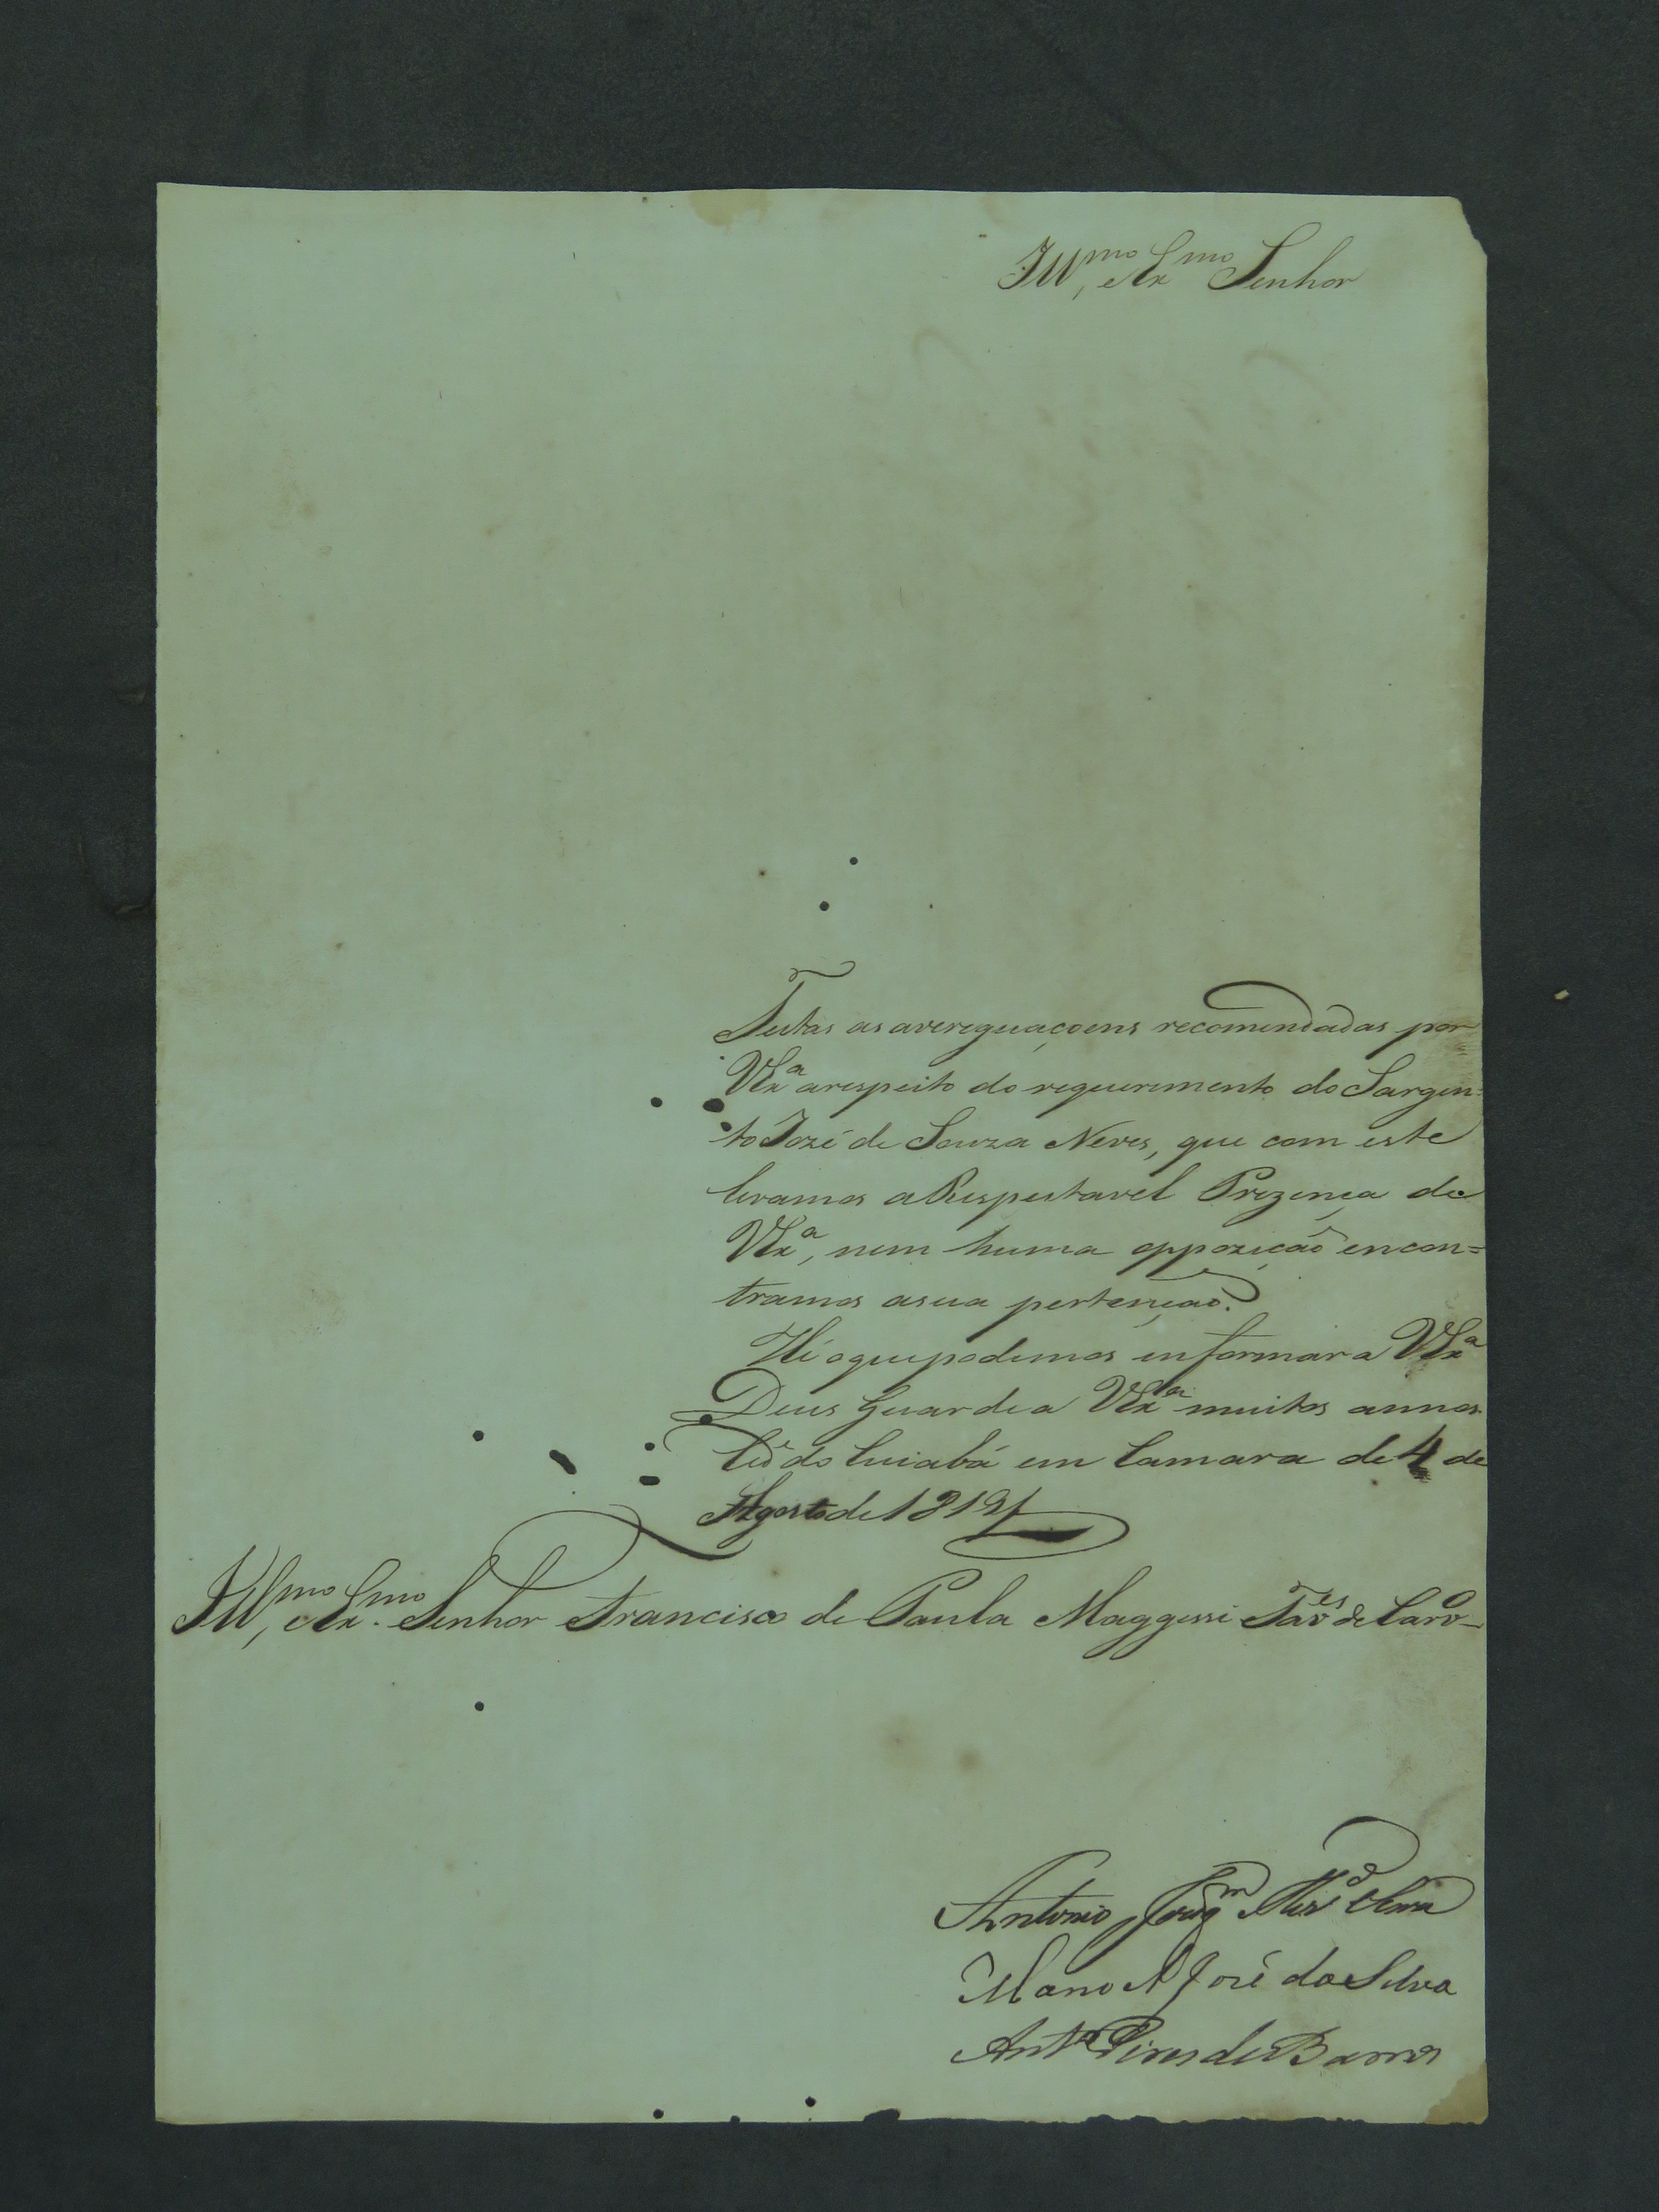 Illmo, e Exmo Senhor
Feitas as avereguaçoens recomendadas por
VExa arespeito do requerimento do Sargen=
to José de Souza Neves, que com este
levamos a Respeitavel Prezença de
VExa, nem huma oppozição encon=
tramos asua pertenção.
He oque podemos enformar a VExa
Deus Guarde a VExa muitos annos
do Cuiabá em Camara de 4 de
Agosto de 1819
Illmo, e Exmo. Senhor Francisco de Paula Maggessi Taves de Carvo
Antonio Joaqm
Manoel José da Silva
Anto Pires de Barros